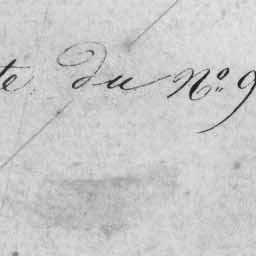 te du Nº 9